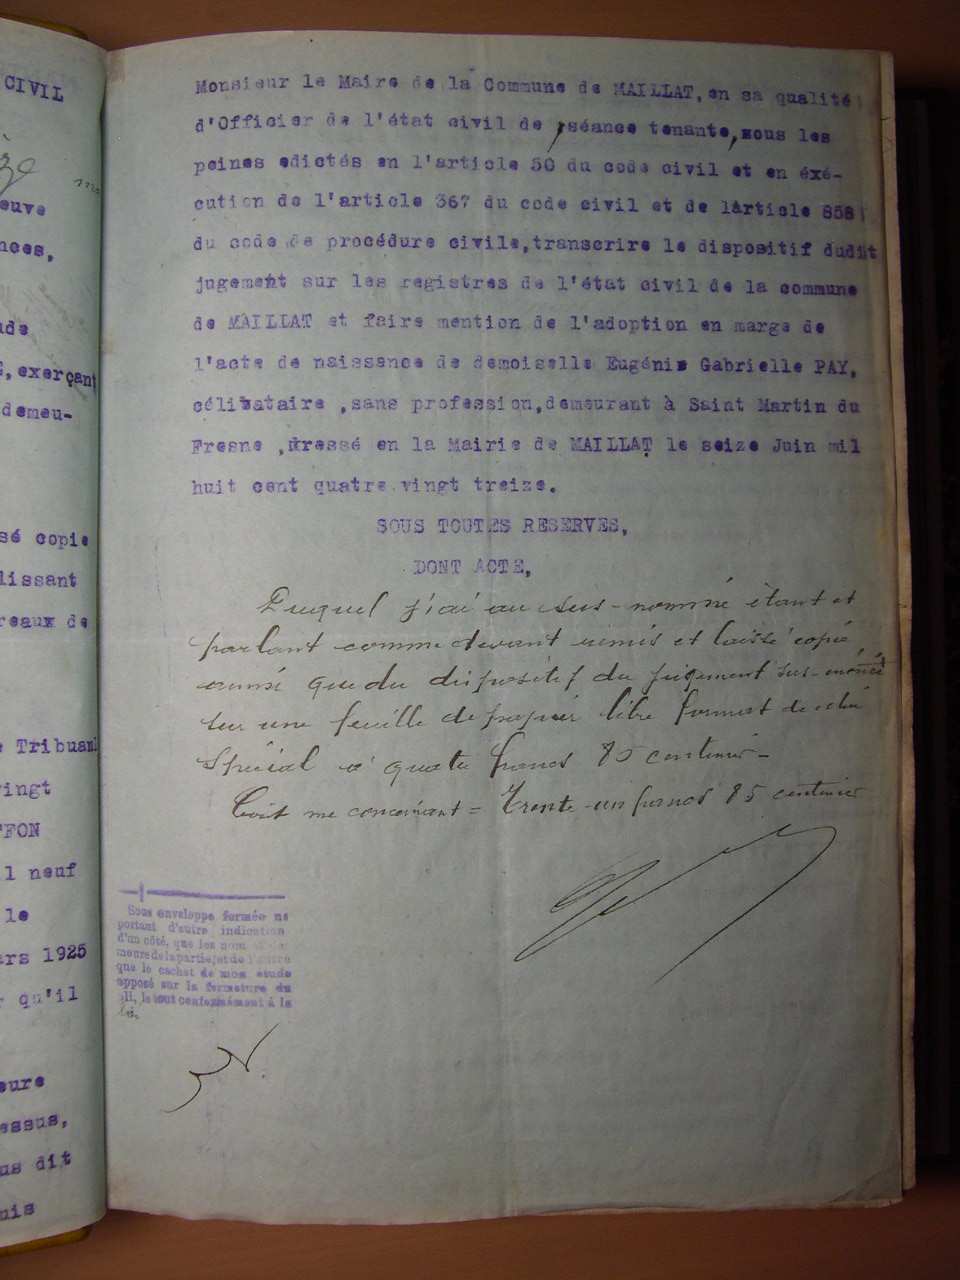 CIVIL
euve
nces,
ude
, exerçant
demeu-
sé copie
lissant
reaux de
Tribuanl
vingt
FFON
l neuf
le
ars 1925
r qu'il
eure
essus,
us dit
uis
Monsieur le Maire de la Commune de MAILLAT, en sa qualité
d'Officier de l'état civil de ,séance tenante, sous les
peines edictés en l'article 50 du code civil et en éxé-
cution de l'article 367 du code civil et de l'article 858
du code de procédure civile, transcrire le dispositif dudit
jugement sur les registres de l'état civil de la commune
de MAILLAT et faire mention de l'adoption en marge de
l'acte de naissance de demoiselle Eugénie Gabrielle PAY,
célibataire ,sans profession, demeurant à Saint Martin du
Fresne ,dressé en la Mairie de MAILLAT le seize Juin mil
huit cent quatre vingt treize.
SOUS TOUTES RESERVES,
DONT ACTE,
Duquel j'ai au sus-nommé étant et
parlant comme devant remis et laissé copie
ainsi que du dispositif du jugement sus-énoncé
sur une feuille de papier libre format de celui
spécial à quatre francs 85 centimes -
Coût me concernant = Trente-un francs 85 centimes
Sous enveloppe fermée ne
portant d'autre indication
d'un côté, que les nom et de-
meure de la partie, et de l'autre
que le cachet de mon etude
apposé sur la fermeture du
pli, le tout conformément à la
loi.